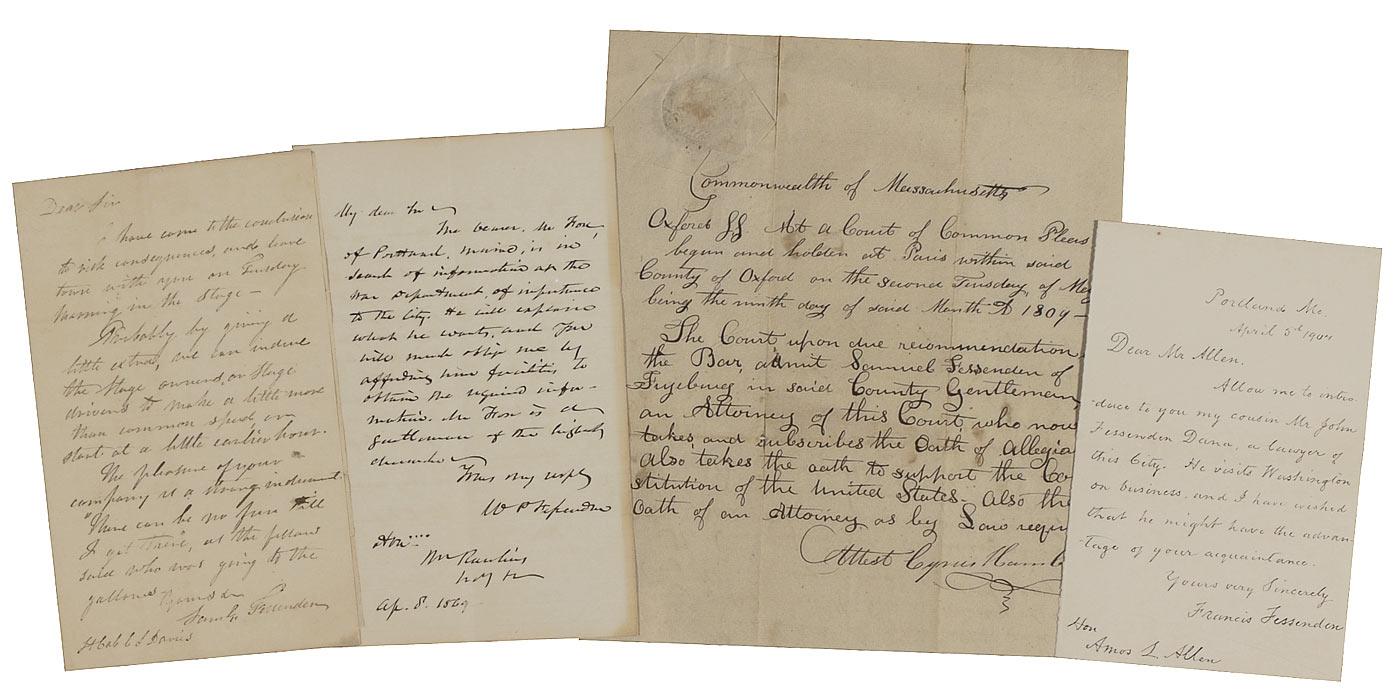 Dear Sir
I have come to the conclusion
to risk consequences, and leave
town with you on Tuesday
morning in the Stage —
Probably by giving a
little extra, we can induce
the Stage owners, or Stage
drivers to make a little more
than common speed or
start at a little earlier hour.
The pleasure of your
company is a strong inducement.
"There can be no fun till
I get there", as the fellow
said who was going to the
gallows
Saml. Fessenden
C S Davis
My dear Sir
The bearer, Mr Fox,
of Portland, Maine, is in
search of information at the
War Department, of importance
to the City. He will explain
what he wants, and you
will much oblige me by
affording him facilities, to
obtain the required infor-
mation. Mr Fox is a
gentleman of the highest
character
Truly
W P Fessenden
Hon
Mr Rawlins
Ap. 8. 1869
Commonwealth of Massachusetts
Oxford SS At a Court of Common Pleas
begun and holden at Paris within said
County of Oxford on the second Tuesday of
being the ninth day of said Month AD 1809 —
The Court upon due recommendation
the Bar admit Samuel Fessenden of
Fryeburg in said County Gentleman,
an Attorney of this Court, who now
takes and subscribes the Oath of allegia
also takes the oath to support the Co
stitution of the United States. also the
Oath of an Attorney as by Law requi
Attest Cyrus Ham
Portland Me.
April 5th
Dear Mr Allen,
Allow me to intro-
-duce to you my cousin Mr John
Fessenden Dana, a lawyer of
this City. He visits Washington
on business, and I have wished
that he might have the advan-
-tage of your acquaintance.
Yours very Sincerely
Francis Fessenden
Hon
Amos L Allen